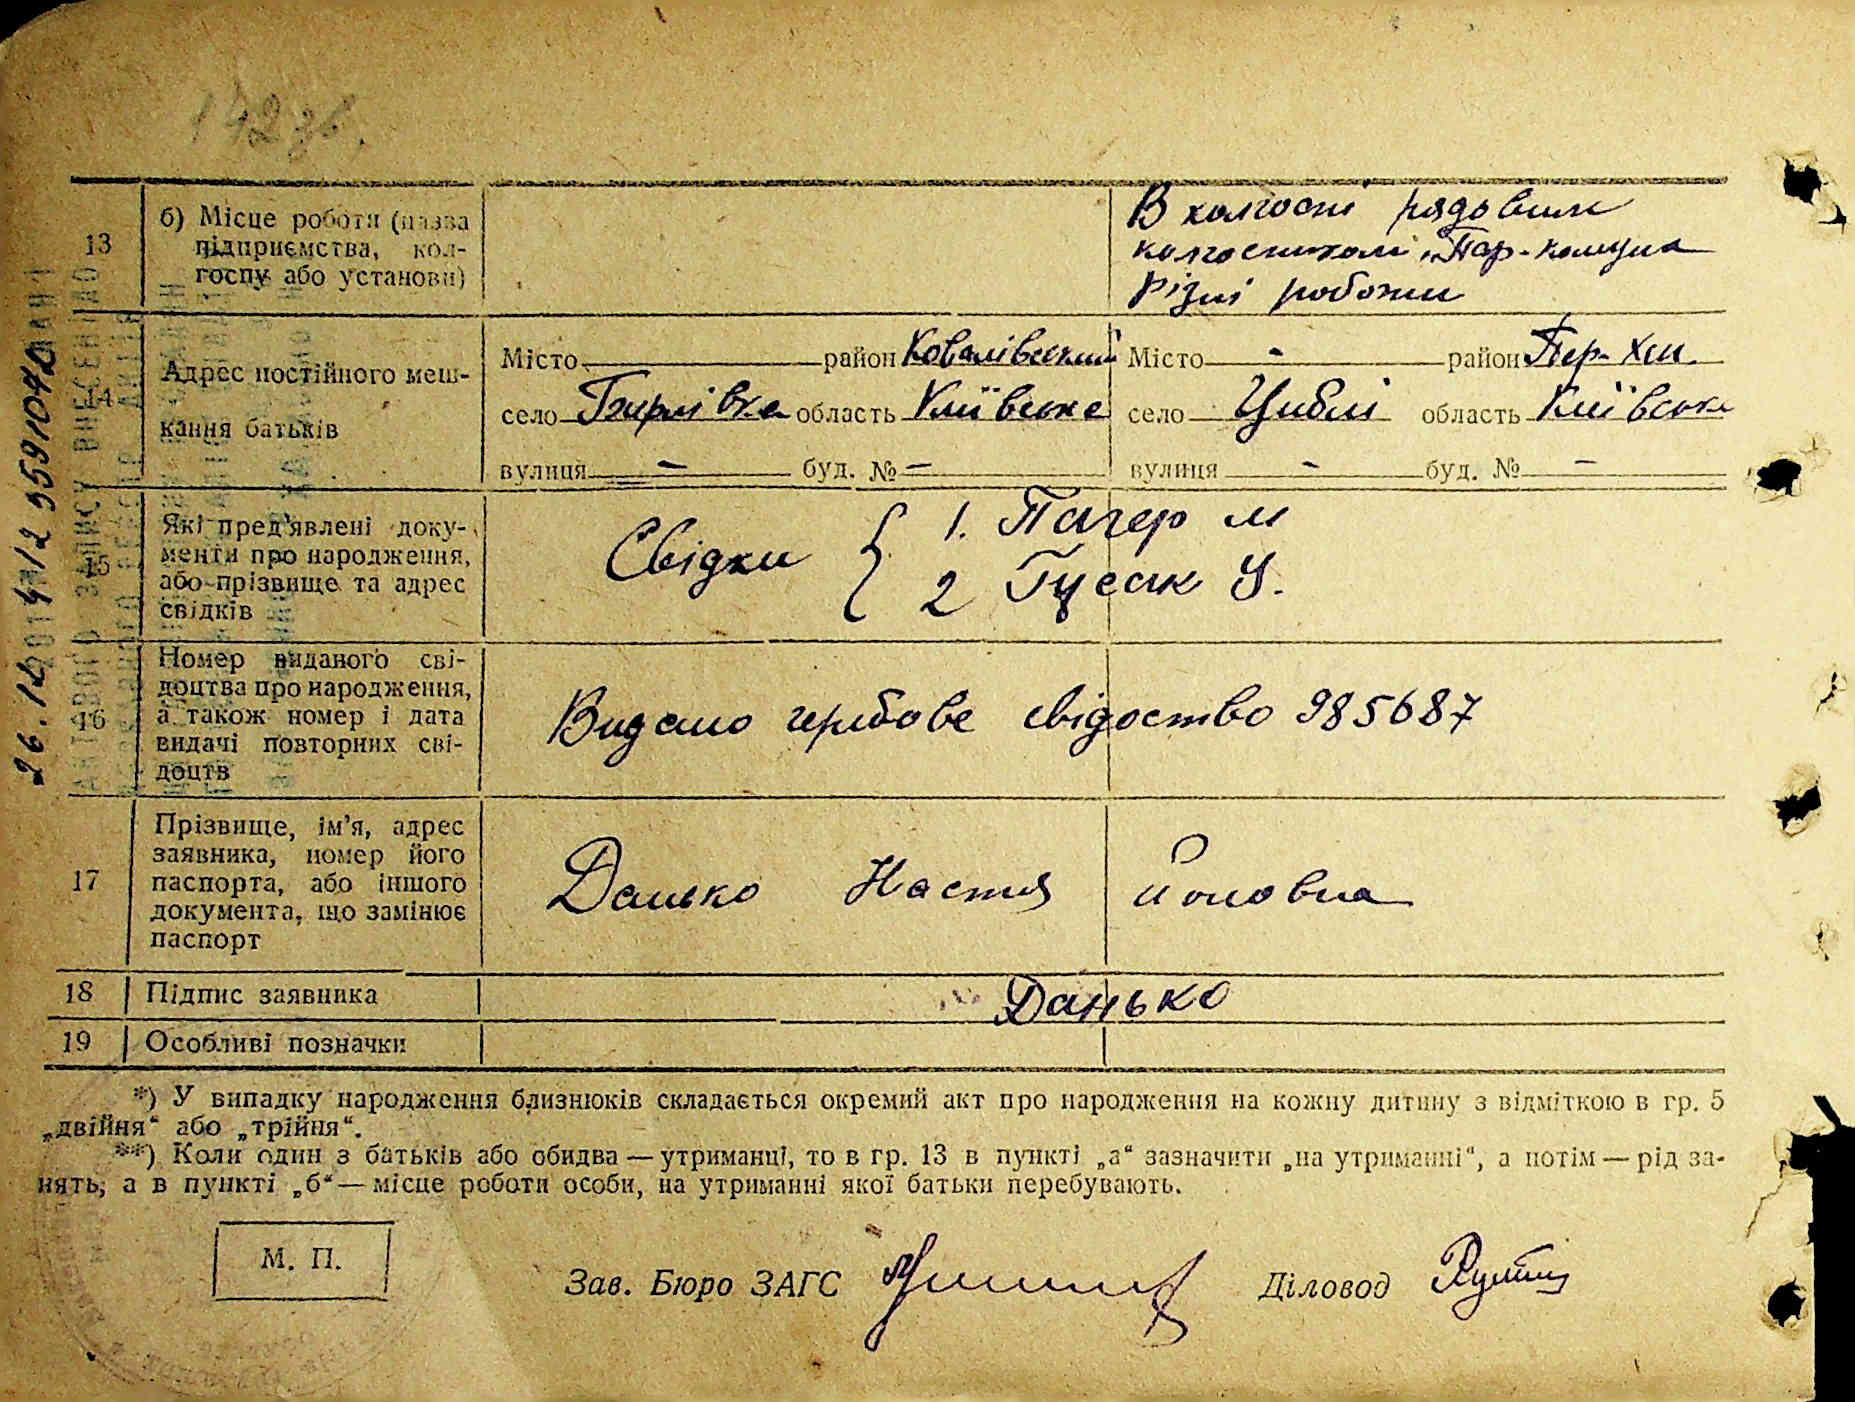 142 зв.
13
б) Місце роботи (назва
підприємства, кол-
госпу або установи)
В колгоспі рядовим
колгоспником „Пар-комуна
Різні роботи
14
Адрес постійного меш-
кання батьків
Місто район
село область Київське
вулиця — буд. № —
Місто - район Пер-Хм.
село Циблі область Київське
вулиця - буд. № —
15
Які пред'явлені доку-
менти про народження,
або прізвище та адрес
свідків
Свідки
1.
2 Гусак У.
16
Номер виданого сві-
доцтва про народження,
а також номер і дата
видачі повторних сві-
доцтв
Видано гербове свідоство 985687
17
Прізвище, ім'я, адрес
заявника, номер його
паспорта, або іншого
документа, що замінює
паспорт
Данько Настя
18
Підпис заявника
Данько
19
Особливі позначки
*) У випадку народження близнюків складається окремий акт про народження на кожну дитину з відміткою в гр. 5
„двійня“ або „трійня“.
**) Коли один з батьків або обидва — утриманці, то в гр. 13 в пункті „а“ зазначити „на утриманні“, а потім — рід за-
нять, а в пункті „б“ — місце роботи особи, на утриманні якої батьки перебувають.
М. П.
Зав. Бюро ЗАГС
Діловод